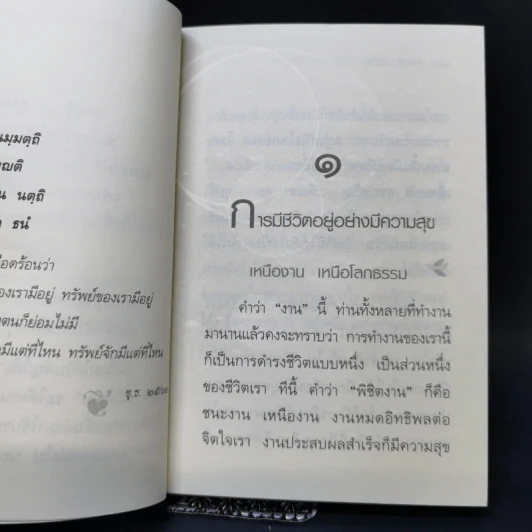 นมฺมตฺถิ
ญติ
น นตฺถิ
ธนํ
ือดร้อนว่า
ของเรามีอยู่ ทรัพย์ของเรามีอยู่
งตนก็ย่อมไม่มี
มีแต่ที่ไหน ทรัพย์จักมีแต่ที่ไหน
ขุ.ธ.
๑
การมีชีวิตอยู่อย่างมีความสุข
เหนืองาน เหนือโลกธรรม
คำว่า “งาน” นี้ ท่านทั้งหลายที่ทำงาน
มานานแล้วคงจะทราบว่า การทำงานของเรานี้
ก็เป็นการดำรงชีวิตแบบหนึ่ง เป็นส่วนหนึ่ง
ของชีวิตเรา ทีนี้ คำว่า “พิชิตงาน” ก็คือ
ชนะงาน เหนืองาน งานหมดอิทธิพลต่อ
จิตใจเรา งานประสบผลสำเร็จก็มีความสุข